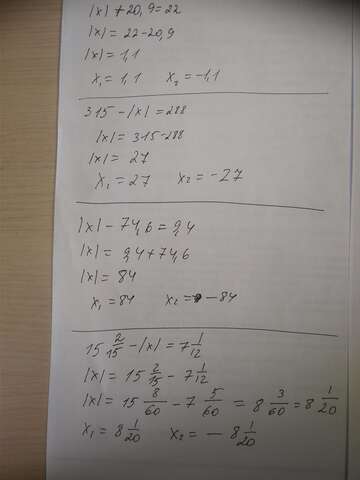 |x| + 20,9 = 22
|x| = 22 - 20,9
|x| = 1,1
x₁ = 1,1 x₂ = -1,1
315 - |x| = 288
|x| = 315 - 288
|x| = 27
x₁ = 27 x₂ = -27
|x| - 74,6 = 9,4
|x| = 9,4 + 74,6
|x| = 84
x₁ = 84 x₂ = -84
15 2/15 - |x| = 7 1/12
|x| = 15 2/15 - 7 1/12
|x| = 15 8/60 - 7 5/60 = 8 3/60 = 8 1/20
x₁ = 8 1/20 x₂ = - 8 1/20